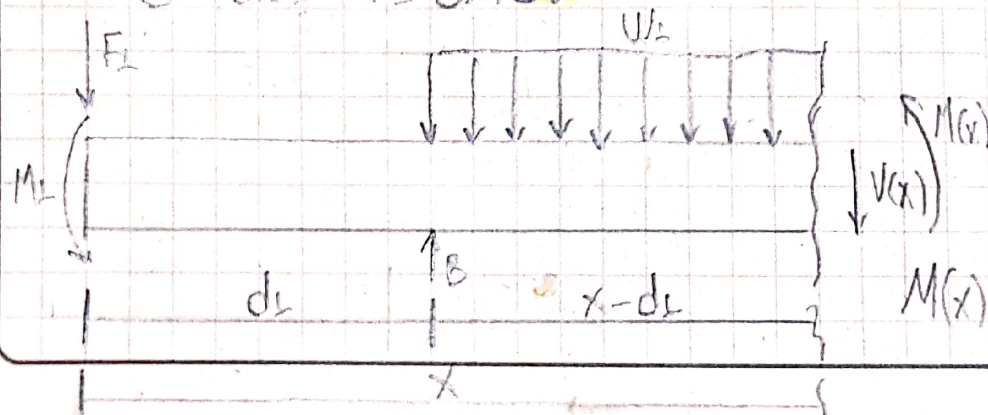 F₁
W₁
M₁
M(x)
V(x)
B
d₁
x-d₁
M(x)
x